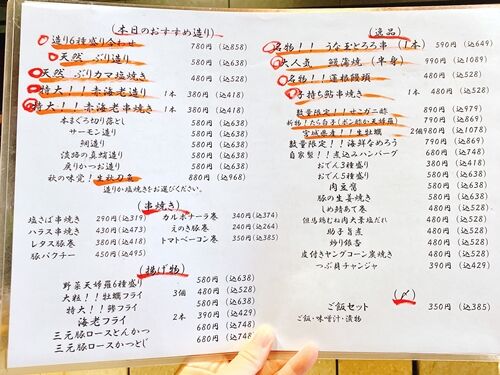 (本日のおすすめ造り)
造り6種盛り合わせ 780円(込858)
天然 ぶり造り 580円(込638)
天然 ぶりカマ塩焼き 480円(込528)
特大!!赤海老造り 1本 380円(込418)
特大!!赤海老串焼き 1本 380円(込418)
本まぐろ切り落とし 580円(込638)
サーモン造り 580円(込638)
鯛造り 580円(込638)
淡路の真蛸造り 580円(込638)
戻りかつお造り 580円(込638)
秋の味覚!生秋刀魚 880円(込968)
造りか塩焼きをお選びください。
(串焼き)
塩さば串焼き 290円(込319)
ハラス串焼き 430円(込473)
レタス豚巻 380円(込418)
豚バクチー 450円(込495)
カルボナーラ巻 340円(込374)
えのき豚巻 240円(込264)
トマトベーコン巻 350円(込385)
(揚げ物)
野菜天婦羅6種盛り 580円(込638)
大粒!!牡蠣フライ 3個 480円(込528)
特大!!鯵フライ 580円(込638)
海老フライ 2本 390円(込429)
三元豚ロースとんかつ 680円(込748)
三元豚ロースかつとじ 680円(込748)
(逸品)
名物!!うな玉とろろ串 (1本) 590円(込649)
大人気 鰻蒲焼(半身) 990円(込1089)
名物!!蓮根饅頭 480円(込528)
子持ち鮎串焼き 480円(込528)
数量限定!!せこガニ酢 890円(込979)
新物!たら白子(ポン酢か天婦羅) 790円(込869)
宮城県産!!生牡蠣 2個980円(込1078)
数量限定!!海鮮なめろう 790円(込869)
自家製!!煮込みハンバーグ 680円(込748)
おでん3種盛り 380円(込418)
おでん5種盛り 580円(込638)
肉豆腐 580円(込638)
豚の生姜焼き 580円(込638)
しめ鯖あて巻 480円(込528)
但馬鶏むね肉大葉塩だれ 480円(込528)
助子旨煮 480円(込528)
炒り銀杏 480円(込528)
皮付きヤングコーン炭焼き 480円(込528)
つぶ貝チャンジャ 390円(込429)
(〆)
ご飯セット 350円(込385)
ご飯・味噌汁・漬物